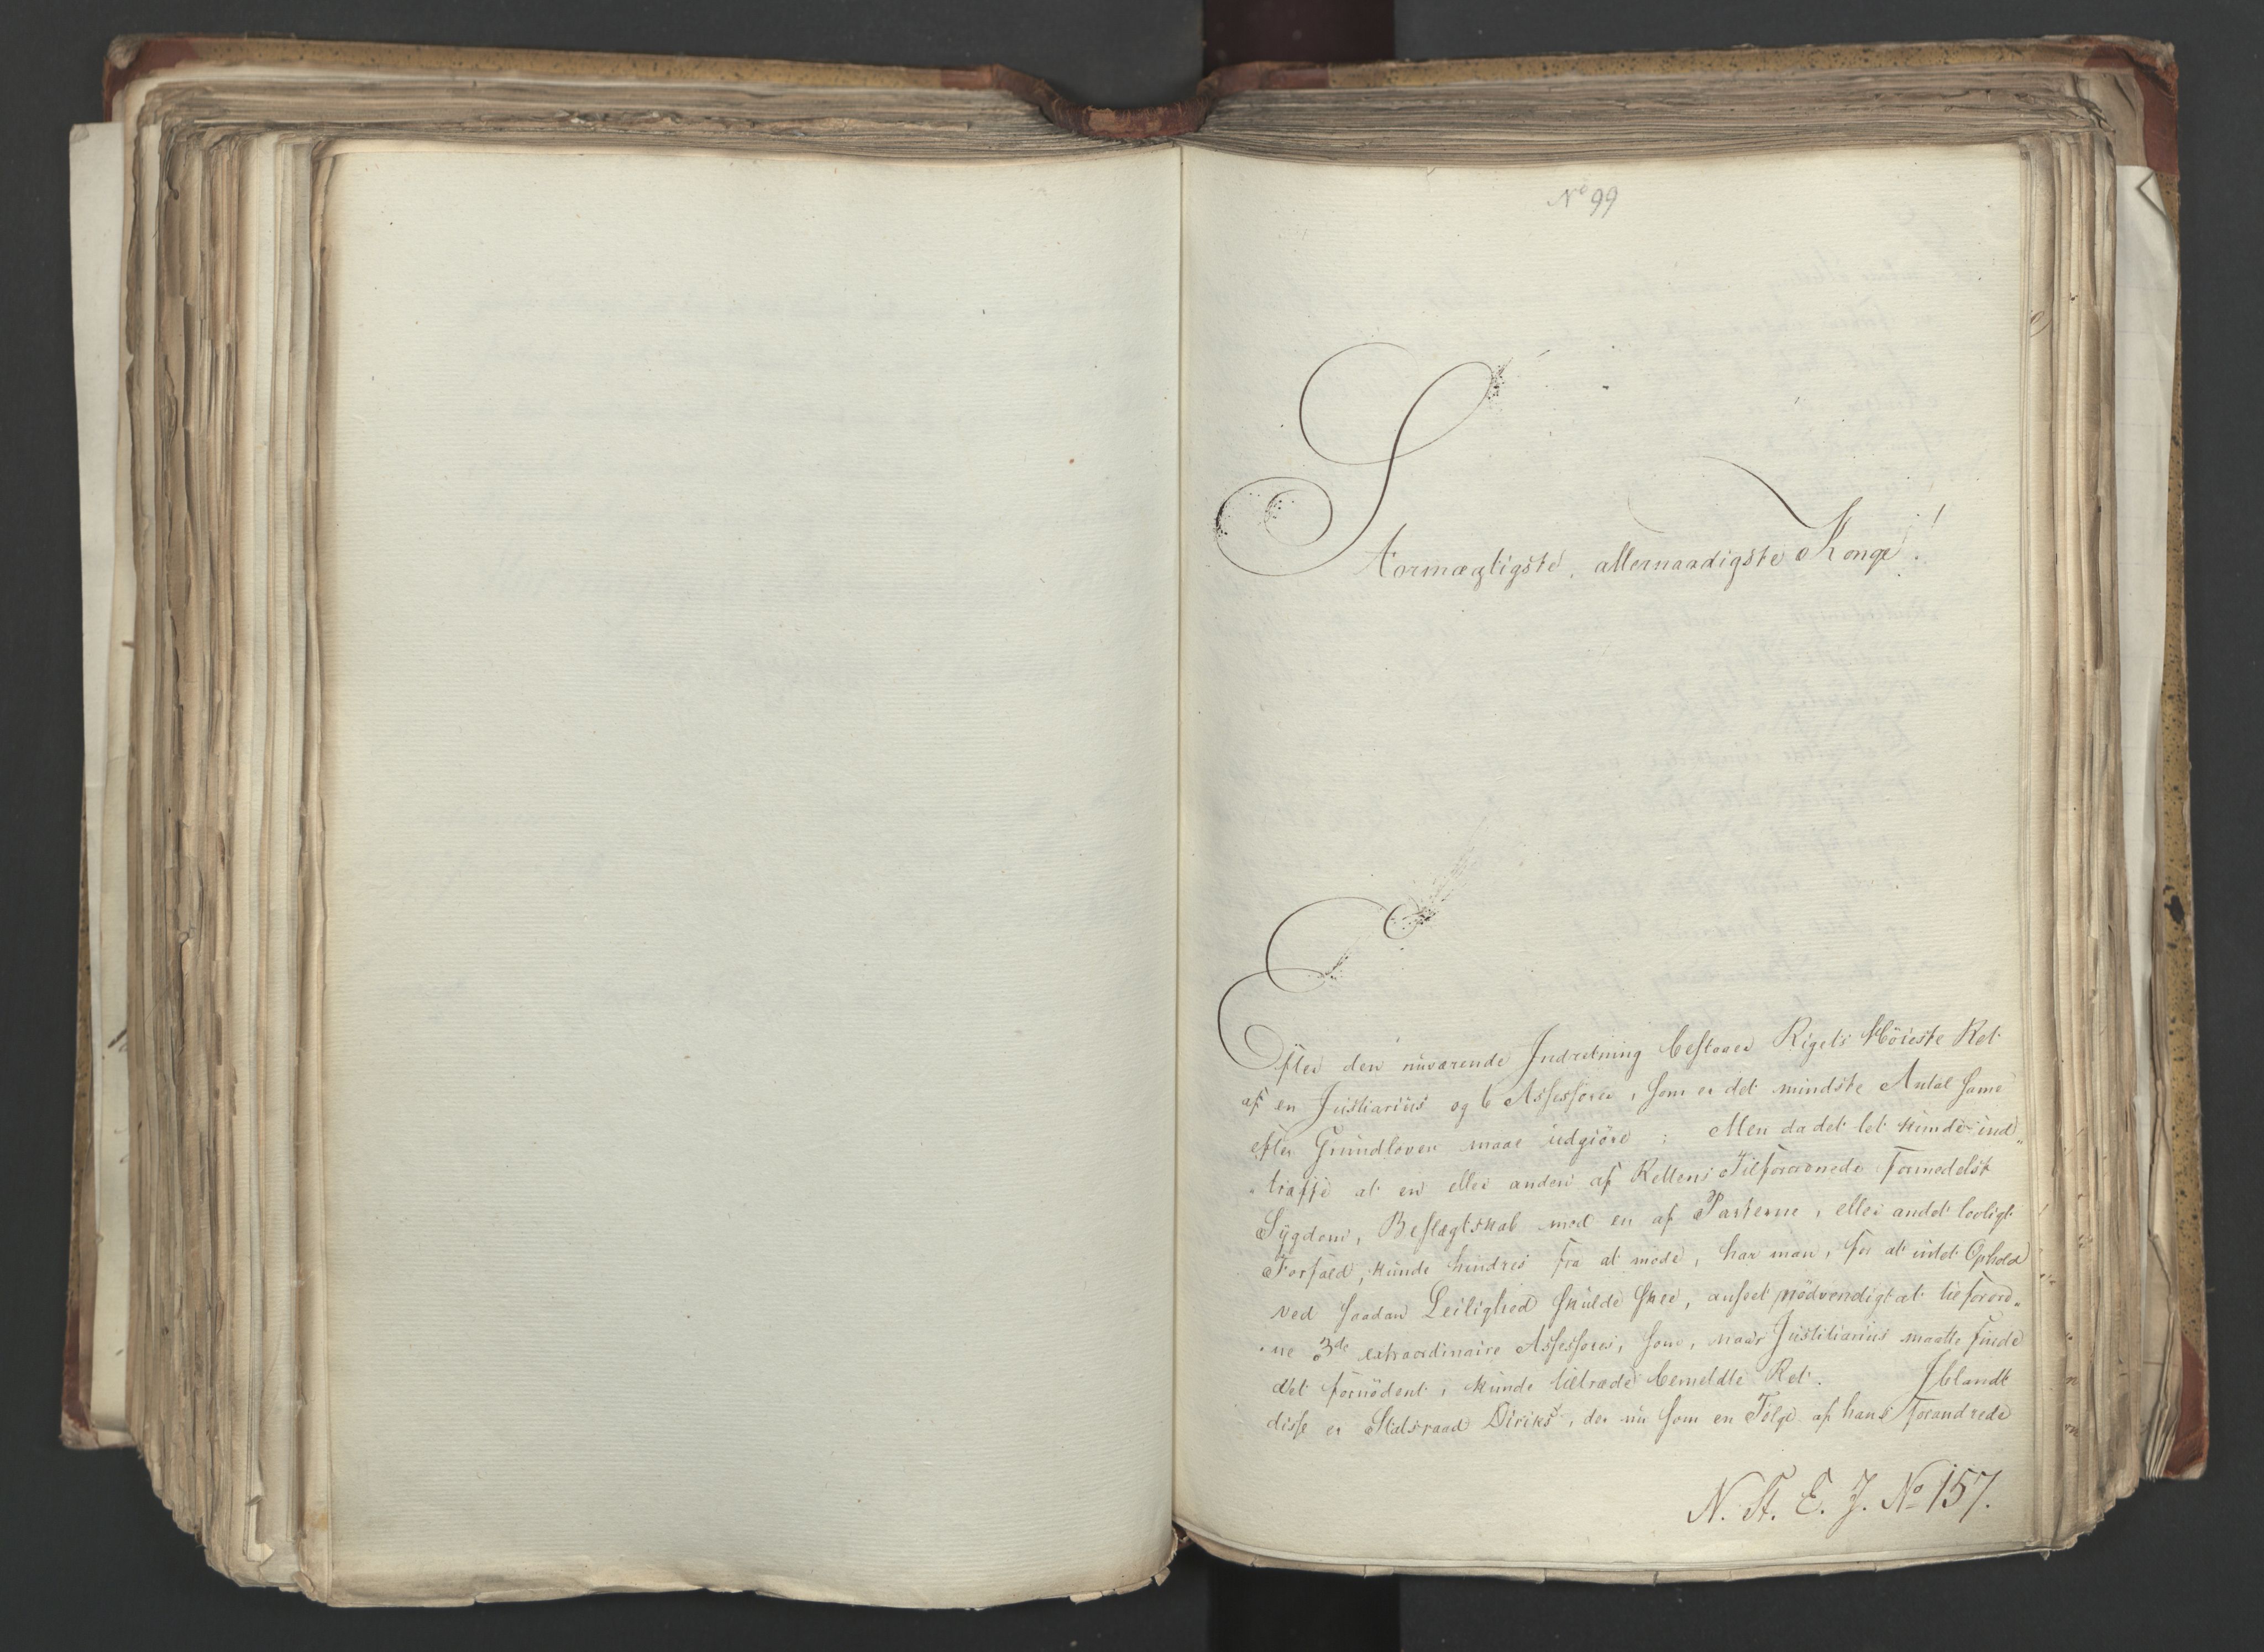 No 99
Stormægtigste, allernaadigste Konge!
Efter den nuværende Indretning bestaaer Rigets Høieste Ret
af en Justiarius og 6 Assessorer, som er det mindste Antal samme
efter Grundloven maae udgiøre; Men da det let kunde ind„
„træffe at en eller anden af Rettens Tilforordnede formedelst
Sygdom, Beslægtskab med en af Parterne, eller andet lovligt
Forfald, kunde hindres fra at møde, har man, for at intet Ophold
ved saadan Leilighed skulde skee, anseet nødvendigt at tilforord„
„ne 3de extraordinaire Assessorer, som, naar Justitiarius maatte finde
det fornödent, kunde tiltræde bemeldte Ret. Iblandt
disse er Statsraad Diriks, der nu som en Følge af hans forandrede
N. St. E. J. No 157.